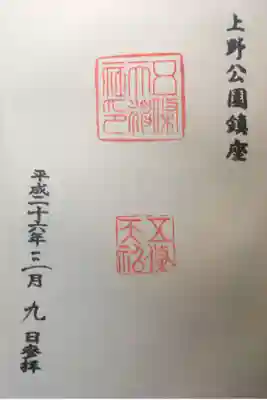 上野公園鎮座
五條天神社印
平成二十六年二月九日参拝